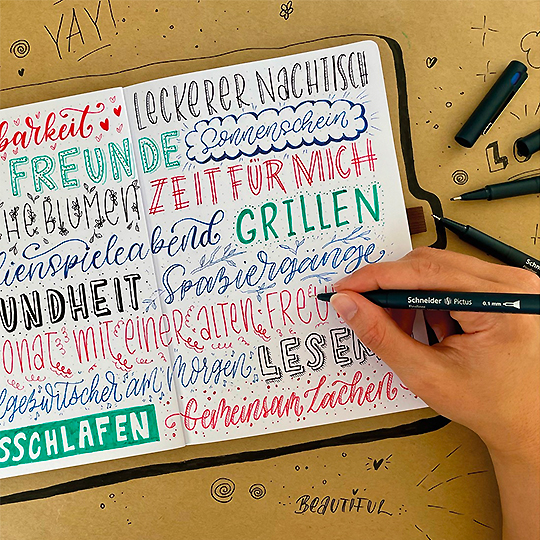 YAY!
LECKERER NACHTISCH
barkeit
FREUNDE Sonnenschein
HE BLUMEN ZEIT FÜR MICH
lienspieleabend GRILLEN
UNDHEIT Spaziergänge
onat mit einer alten FREU
lgezwitscher am Morgen LESEN
SSCHLAFEN Gemeinsam Lachen
Schneider Pictus 0.1 mm
BEAUTIFUL